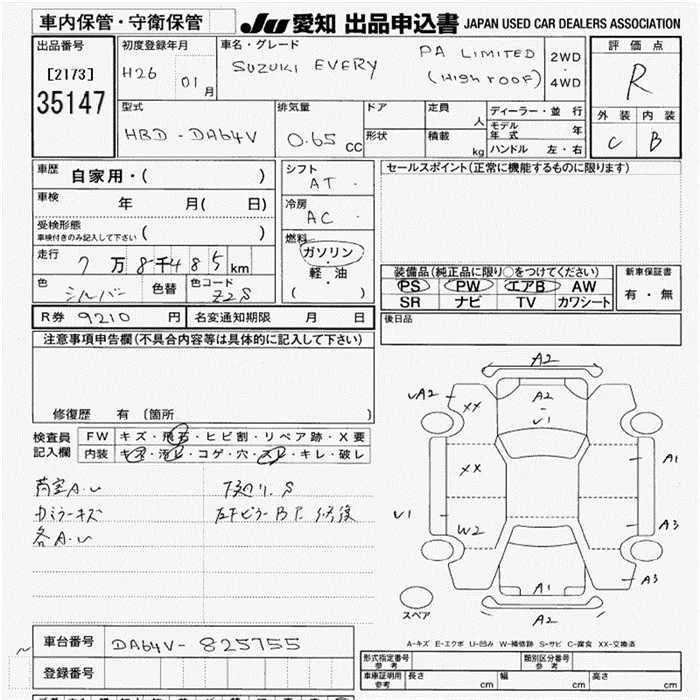 車内保管・守衛保管
JU 愛知 出品申込書 JAPAN USED CAR DEALERS ASSOCIATION
出品番号
[2173]
35147
初度登録年月
H26 01 月
車名・グレード
SUZUKI EVERY
PA LIMITED
(High roof)
2WD
・
4WD
評価点
R
外装 内装
C B
型式
HBD-DA64V
排気量
0.65 cc
ドア
形状
定員
人
積載
kg
ディーラー・並行
モデル年式 年
ハンドル 左・右
車歴 自家用・( )
車検 年 月( 日)
受検形態
車検付きのみ記入して下さい ( )
走行 7万8千485km
色 シルバー 色替 色コード Z2S
シフト
AT
冷房
AC
燃料
ガソリン
・
軽油
( )
セールスポイント(正常に機能するものに限ります)
装備品(純正品に限り○をつけてください)
PS PW エアB AW
SR ナビ TV カワシート
新車保証書
有・無
R券 9210 円 名変通知期限 月 日
後日品
注意事項申告欄(不具合内容等は具体的に記入して下さい)
修復歴 有〔箇所 〕
検査員記入欄
FW キズ・飛石・ヒビ割・リペア跡・X要
内装 キズ・汚レ・コゲ・穴・スレ・キレ・破レ
荷室A.U
下廻り.S
カミラーキズ
各A.U
A2
UA2
XX
A2
U1
A1
XX
U1
W2
A3
A3
A1
A2
スペア
A-キズ E-エクボ U-凹み W-補修跡 S-サビ C-腐食 XX-交換済
車台番号 DA64V-825755
登録番号
形式指定番号 参考
類別区分番号 参考
車庫証明用 参考 長さ cm 幅 cm 高さ cm